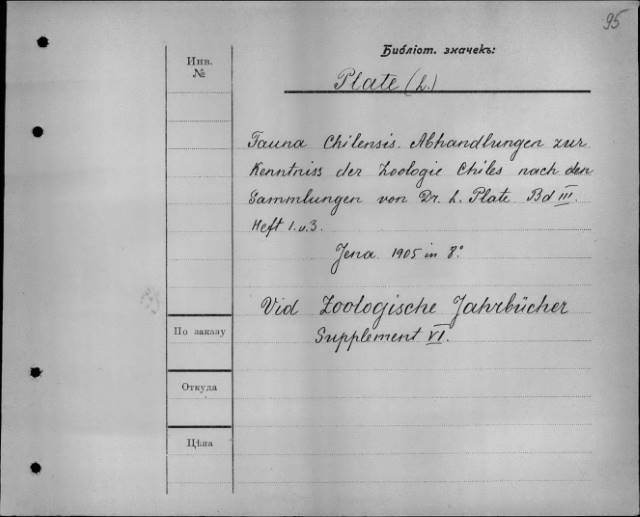 95
Библіот. значекъ:
Инв.
№
Plate (L.)
Fauna Chilensis. Abhandlungen zur
Kenntniss der Zoologie Chiles nach den
Sammlungen von Dr. L. Plate Bd III.
Heft 1. u. 3.
Jena 1905 in 8°
Vid Zoologische Jahrbücher
Supplement VI.
По заказу
Откуда
Цѣна